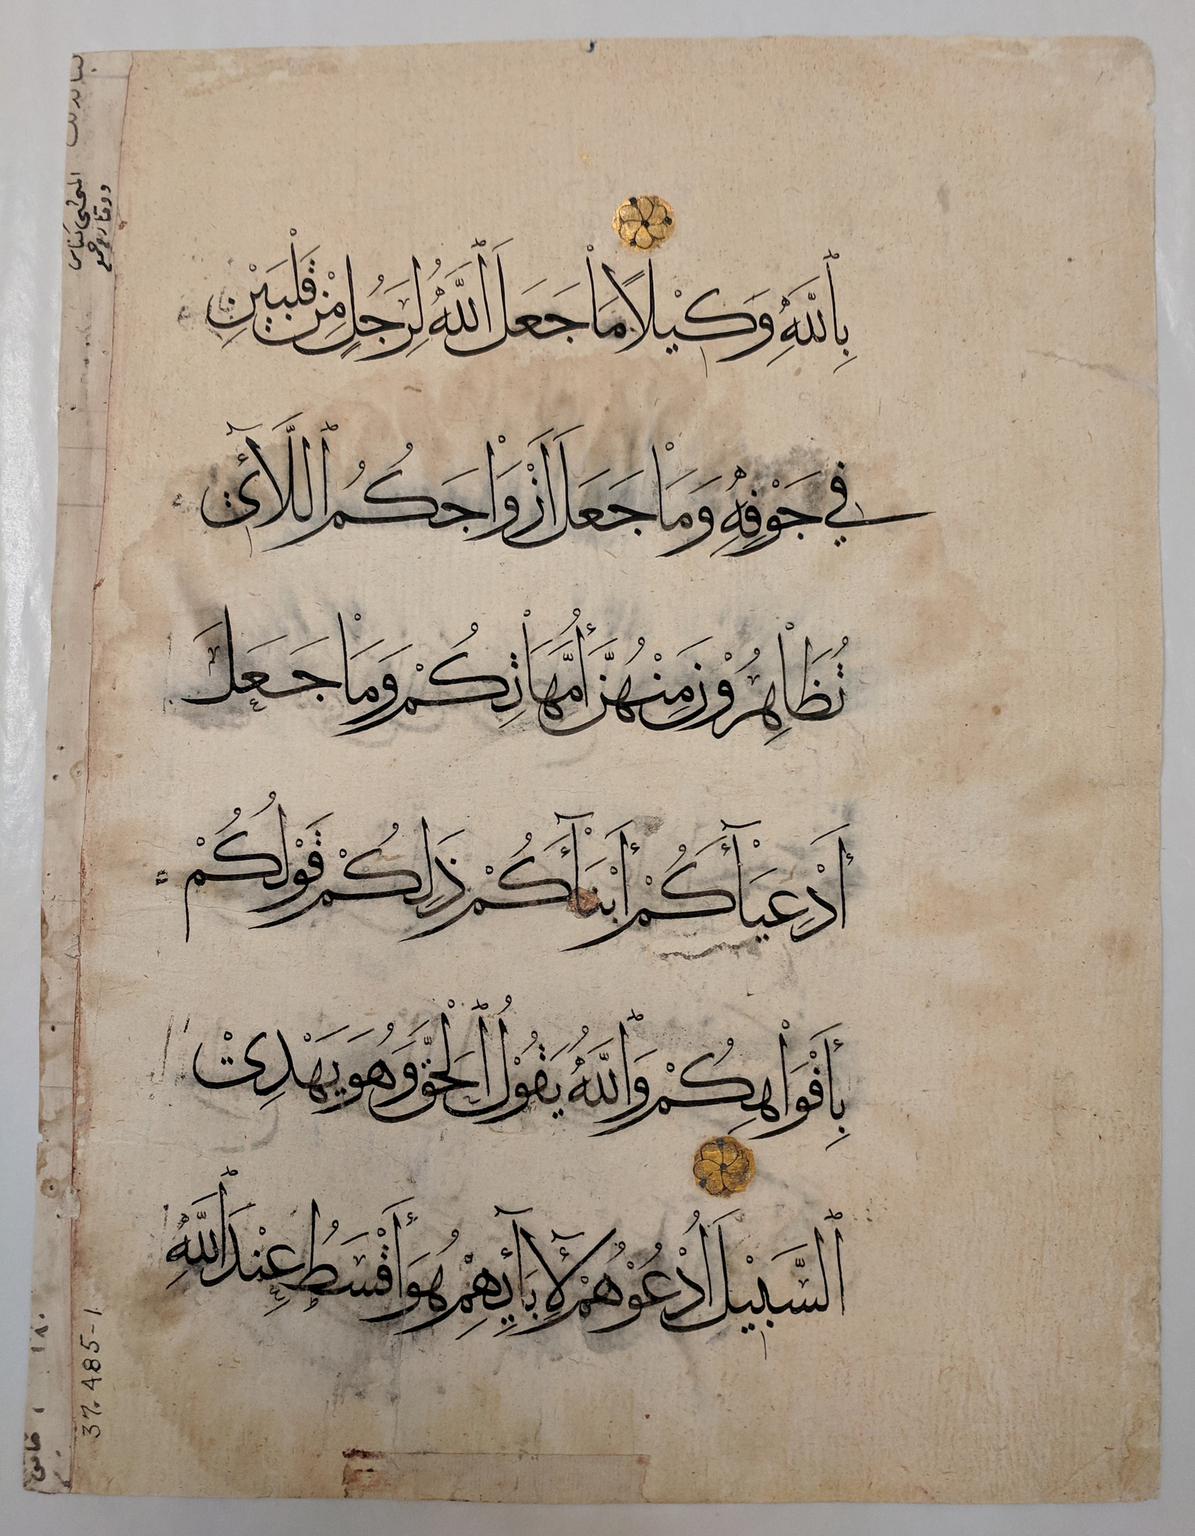 بِاللَّهِ وَكِيْلًا مَا جَعَلَ اللَّهُ لِرَجُلٍ مِنْ قَلْبَيْنِ
فِي جَوْفِهِ وَمَا جَعَلَ أَزْوَاجَكُمُ اللَّآئِ
تُظَاهِرُوْنَ مِنْهُنَّ أُمَّهَاتِكُمْ وَمَا جَعَلَ
أَدْعِيَآءَكُمْ أَبْنَآءَكُمْ ذَلِكُمْ قَوْلُكُمْ
بِأَفْوَاهِكُمْ وَاللَّهُ يَقُوْلُ الْحَقَّ وَهُوَ يَهْدِيْ
السَّبِيْلَ ادْعُوْهُمْ لِآبَآئِهِمْ هُوَ أَقْسَطُ عِنْدَ اللَّهِ
37.485-1